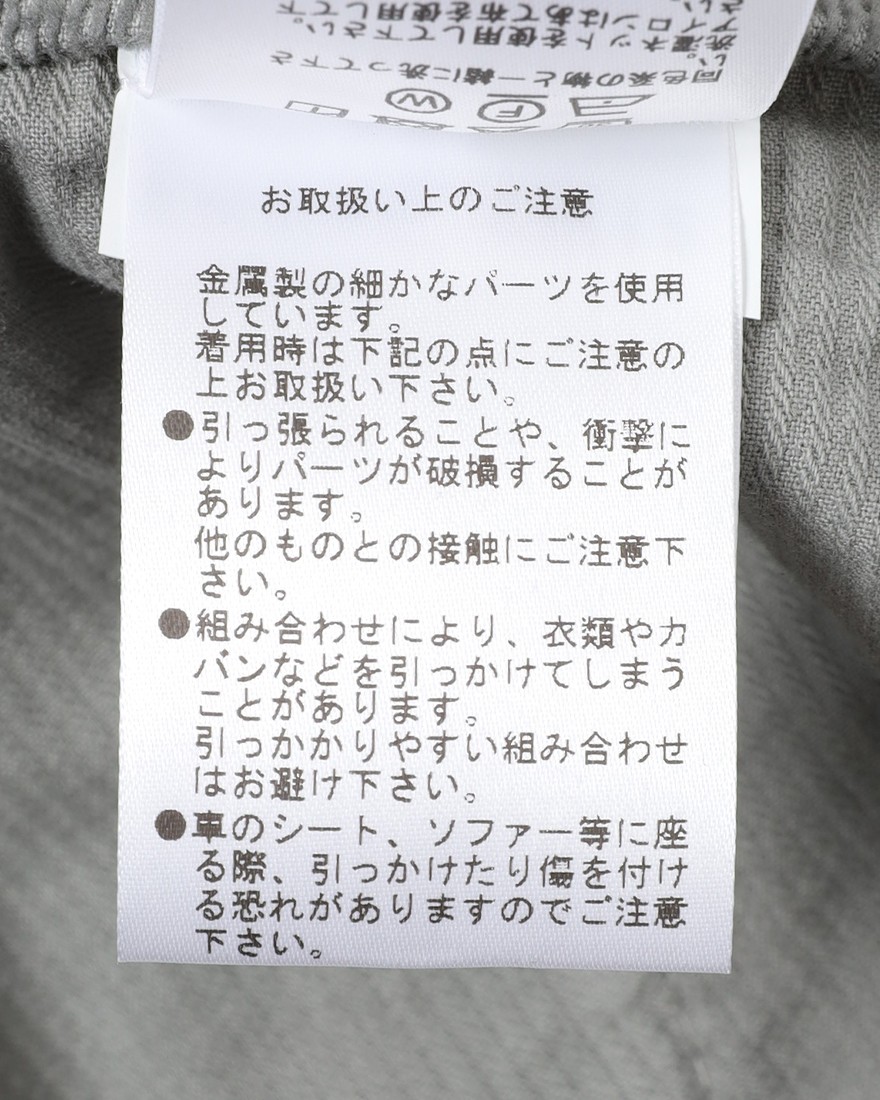 Ⓕ Ⓦ
同色系の物と一緒に洗って下さ
い。
洗濯ネットを使用して下さい。
アイロンはあて布を使用して下
さい。
お取扱い上のご注意
金属製の細かなパーツを使用
しています。
着用時は下記の点にご注意の
上お取扱い下さい。
●引っ張られることや、衝撃に
よりパーツが破損することが
あります。
他のものとの接触にご注意下
さい。
●組み合わせにより、衣類やカ
バンなどを引っかけてしまう
ことがあります。
引っかかりやすい組み合わせ
はお避け下さい。
●車のシート、ソファー等に座
る際、引っかけたり傷を付け
る恐れがありますのでご注意
下さい。